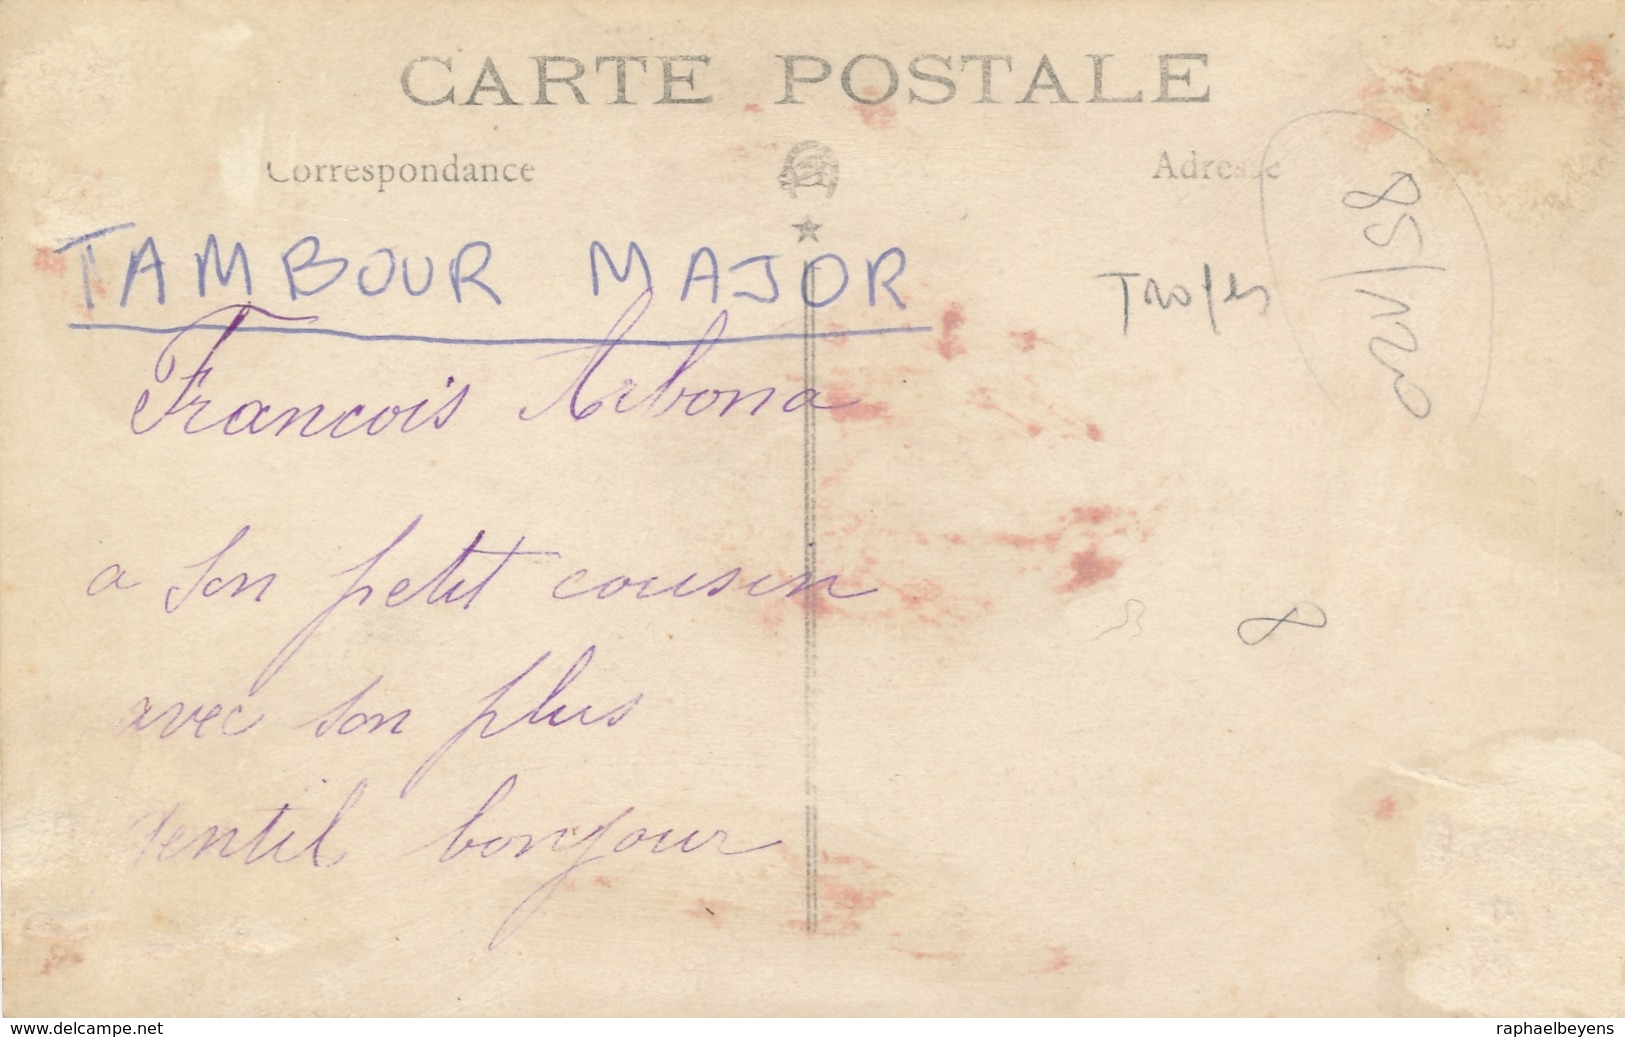 CARTE POSTALE
Correspondance
Adresse
TAMBOUR MAJOR
Troyes
85/
Francois Arbona
a son petit cousin
avec son plus
gentil bonjour
8
www.delcampe.net
raphaelbeyens